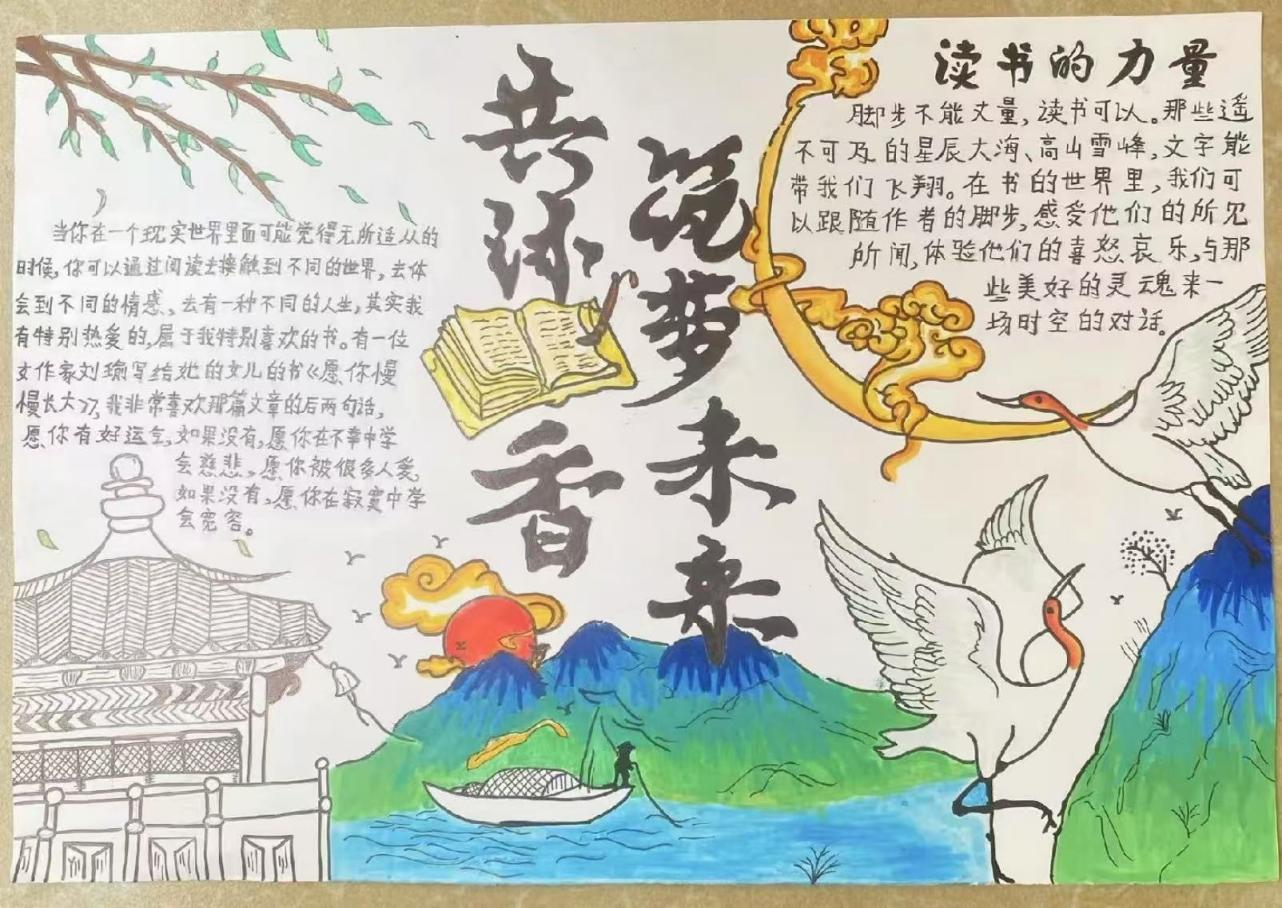 共沐香
筑梦未来
当你在一个现实世界里面可能觉得无所适从的
时候,你可以通过阅读去接触到不同的世界,去体
会到不同的情感、去有一种不同的人生,其实我
有特别热爱的,属于我特别喜欢的书。有一位
女作家刘瑜写给她的女儿的书《愿你慢
慢长大》,我非常喜欢那篇文章的后两句话,
愿你有好运气,如果没有,愿你在不幸中学
会慈悲,愿你被很多人爱,
如果没有,愿你在寂寞中学
会宽容。
读书的力量
脚步不能丈量,读书可以。那些遥
不可及的星辰大海、高山雪峰,文字能
带我们飞翔。在书的世界里,我们可
以跟随作者的脚步,感受他们的所见
所闻,体验他们的喜怒哀乐,与那
些美好的灵魂来一
场时空的对话。